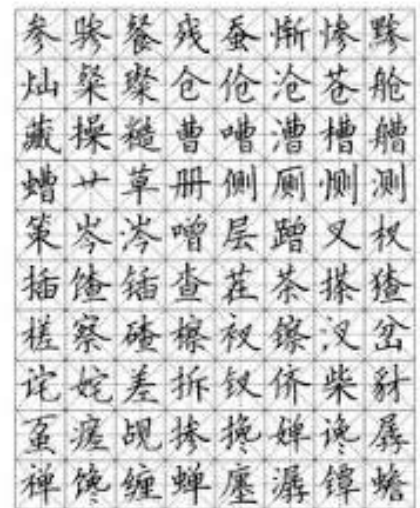 参骖餐残蚕惭惨黪
灿粲璨仓伧沧苍舱
藏操糙曹嘈漕槽艚
螬艹草册侧厕恻测
策岑涔噌层蹭叉杈
插馇锸查茬茶搽猹
槎察碴檫衩镲汊岔
诧姹差拆钗侪柴豺
虿瘥觇掺搀婵谗孱
禅馋缠蝉廛潺镡蟾